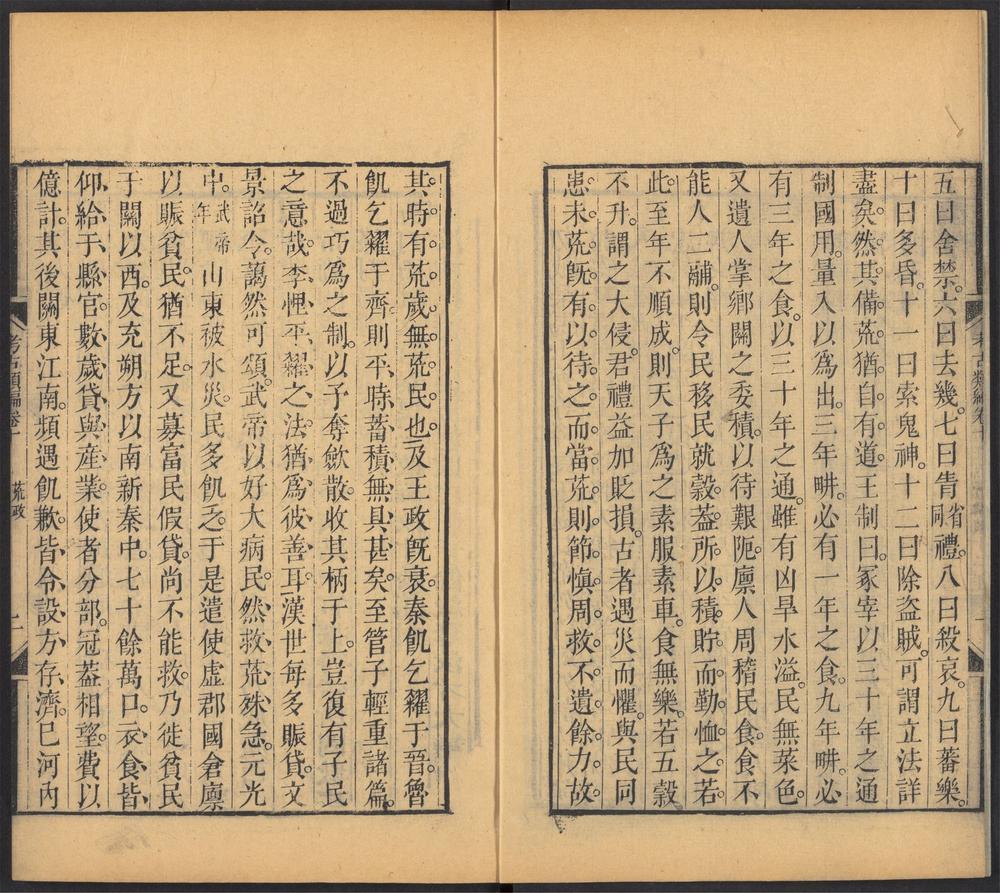 五曰舍禁。六曰去幾。七曰眚省同禮。八曰殺哀。九曰蕃樂。
十曰多昏。十一曰索鬼神。十二曰除盜賊。可謂立法詳
盡矣。然其備荒。猶自有道。王制曰。冢宰以三十年之通
制國用。量入以爲出。三年畊。必有一年之食。九年畊。必
有三年之食。以三十年之通。雖有凶旱水溢。民無菜色。
又遺人掌鄉關之委積。以待艱阨。廩人周稽民食。食不
能人二鬴。則令民移民就穀。葢所以積貯而勤恤之。若
此。至年不順成。則天子爲之素服素車。食無樂。若五穀
不升。謂之大侵。君禮益加貶損。古者遇災而懼。與民同
患。未荒旣有以待之。而當荒則節愼周救。不遺餘力。故
考古類編卷十
其時有荒歲。無荒民也。及王政旣衰。秦飢乞糴于晉。魯
飢乞糴于齊。則平時蓄積無具甚矣。至管子輕重諸篇。
不過巧爲之制。以予奪斂散。收其柄于上。豈復有子民
之意哉。李悝平糴之法。猶爲彼善耳。漢世每多賑貸。文
景詔令。藹然可頌。武帝以好大病民。然救荒殊急。元光
中。武帝年山東被水災。民多飢乏。于是遣使虛郡國倉廩
以賑貧民。猶不足。又募富民假貸。尚不能救。乃徙貧民
于關以西。及充朔方以南新秦中。七十餘萬口。衣食皆
仰給于縣官。數歲貸與產業。使者分部。冠葢相望。費以
億計。其後關東江南。頻遇飢歉。皆令設方存濟。已河內
考古類編卷十 荒政 二